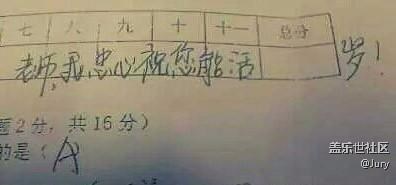 七 八 九 十 十一 总分
老师,我忠心祝您能活 岁!
题2分,共16分)
的是(A
盖乐世社区
@Jury